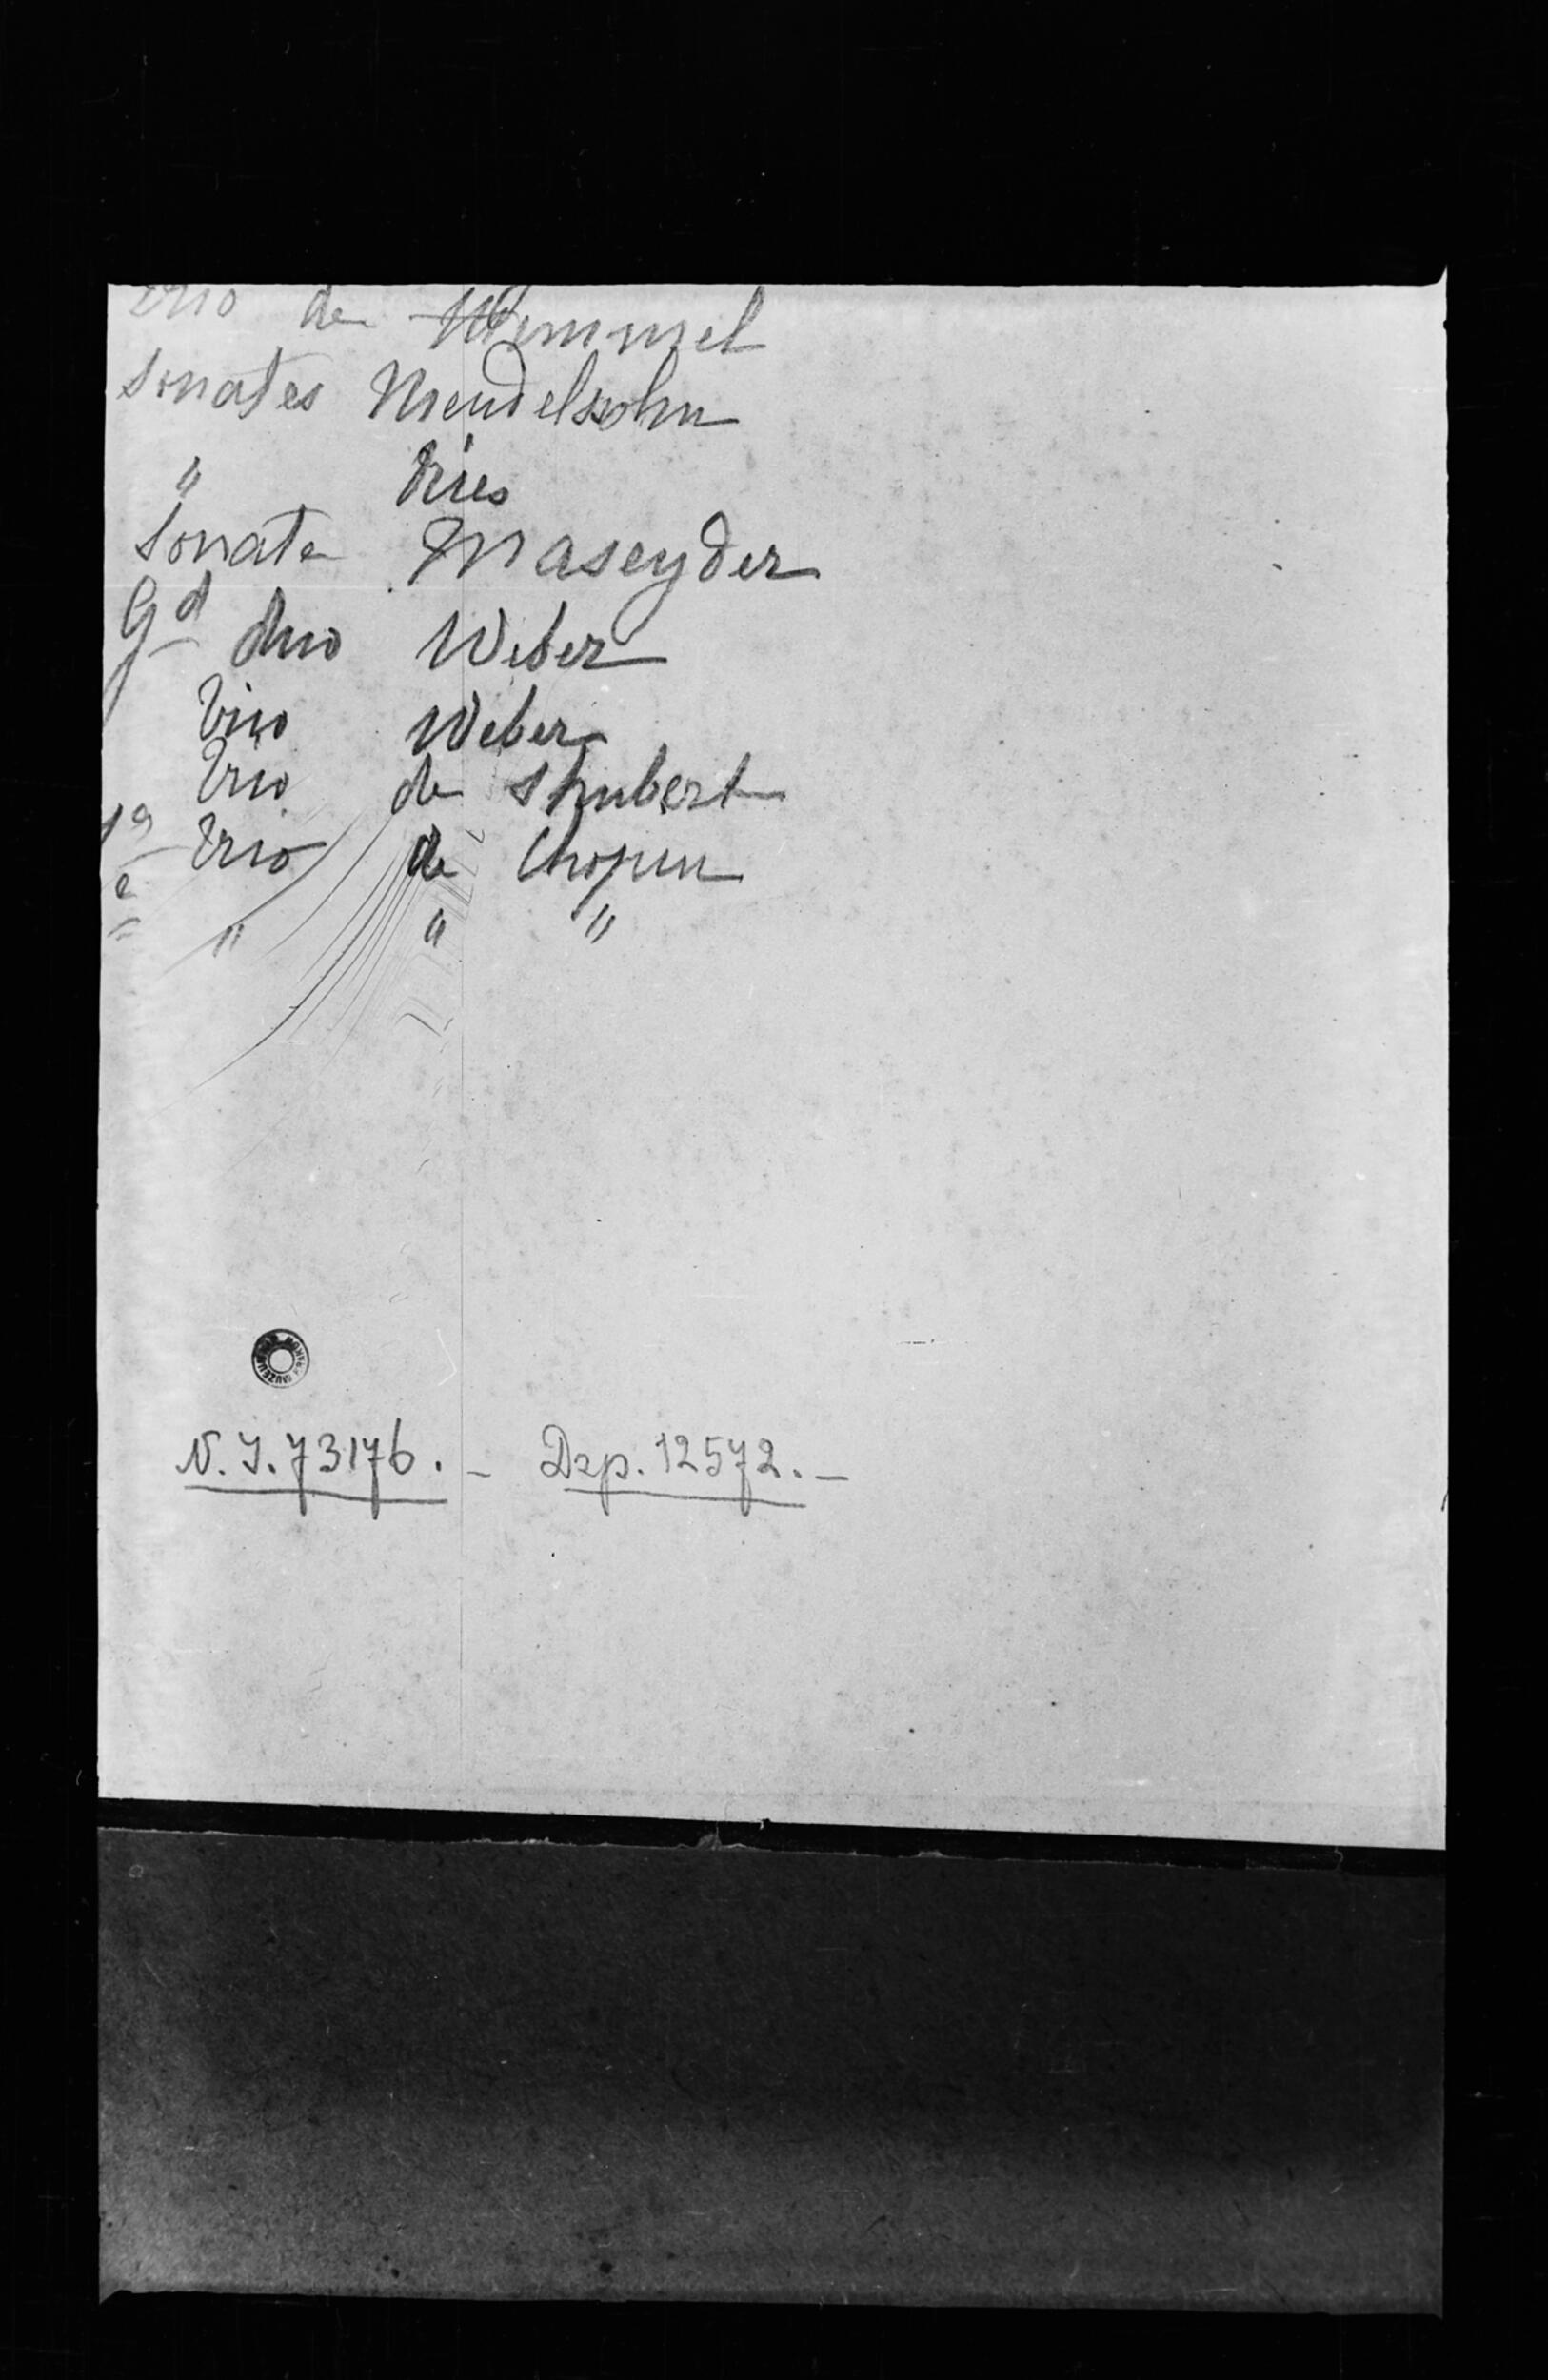 Trio de Hummel
Sonates Mendelssohn
" Ries
Sonate Maseyder
Gd duo Weber
Trio Weber
Trio de Shubert
Trio de Chopin
" " "
N. I. 73176. - Dep. 12572. -